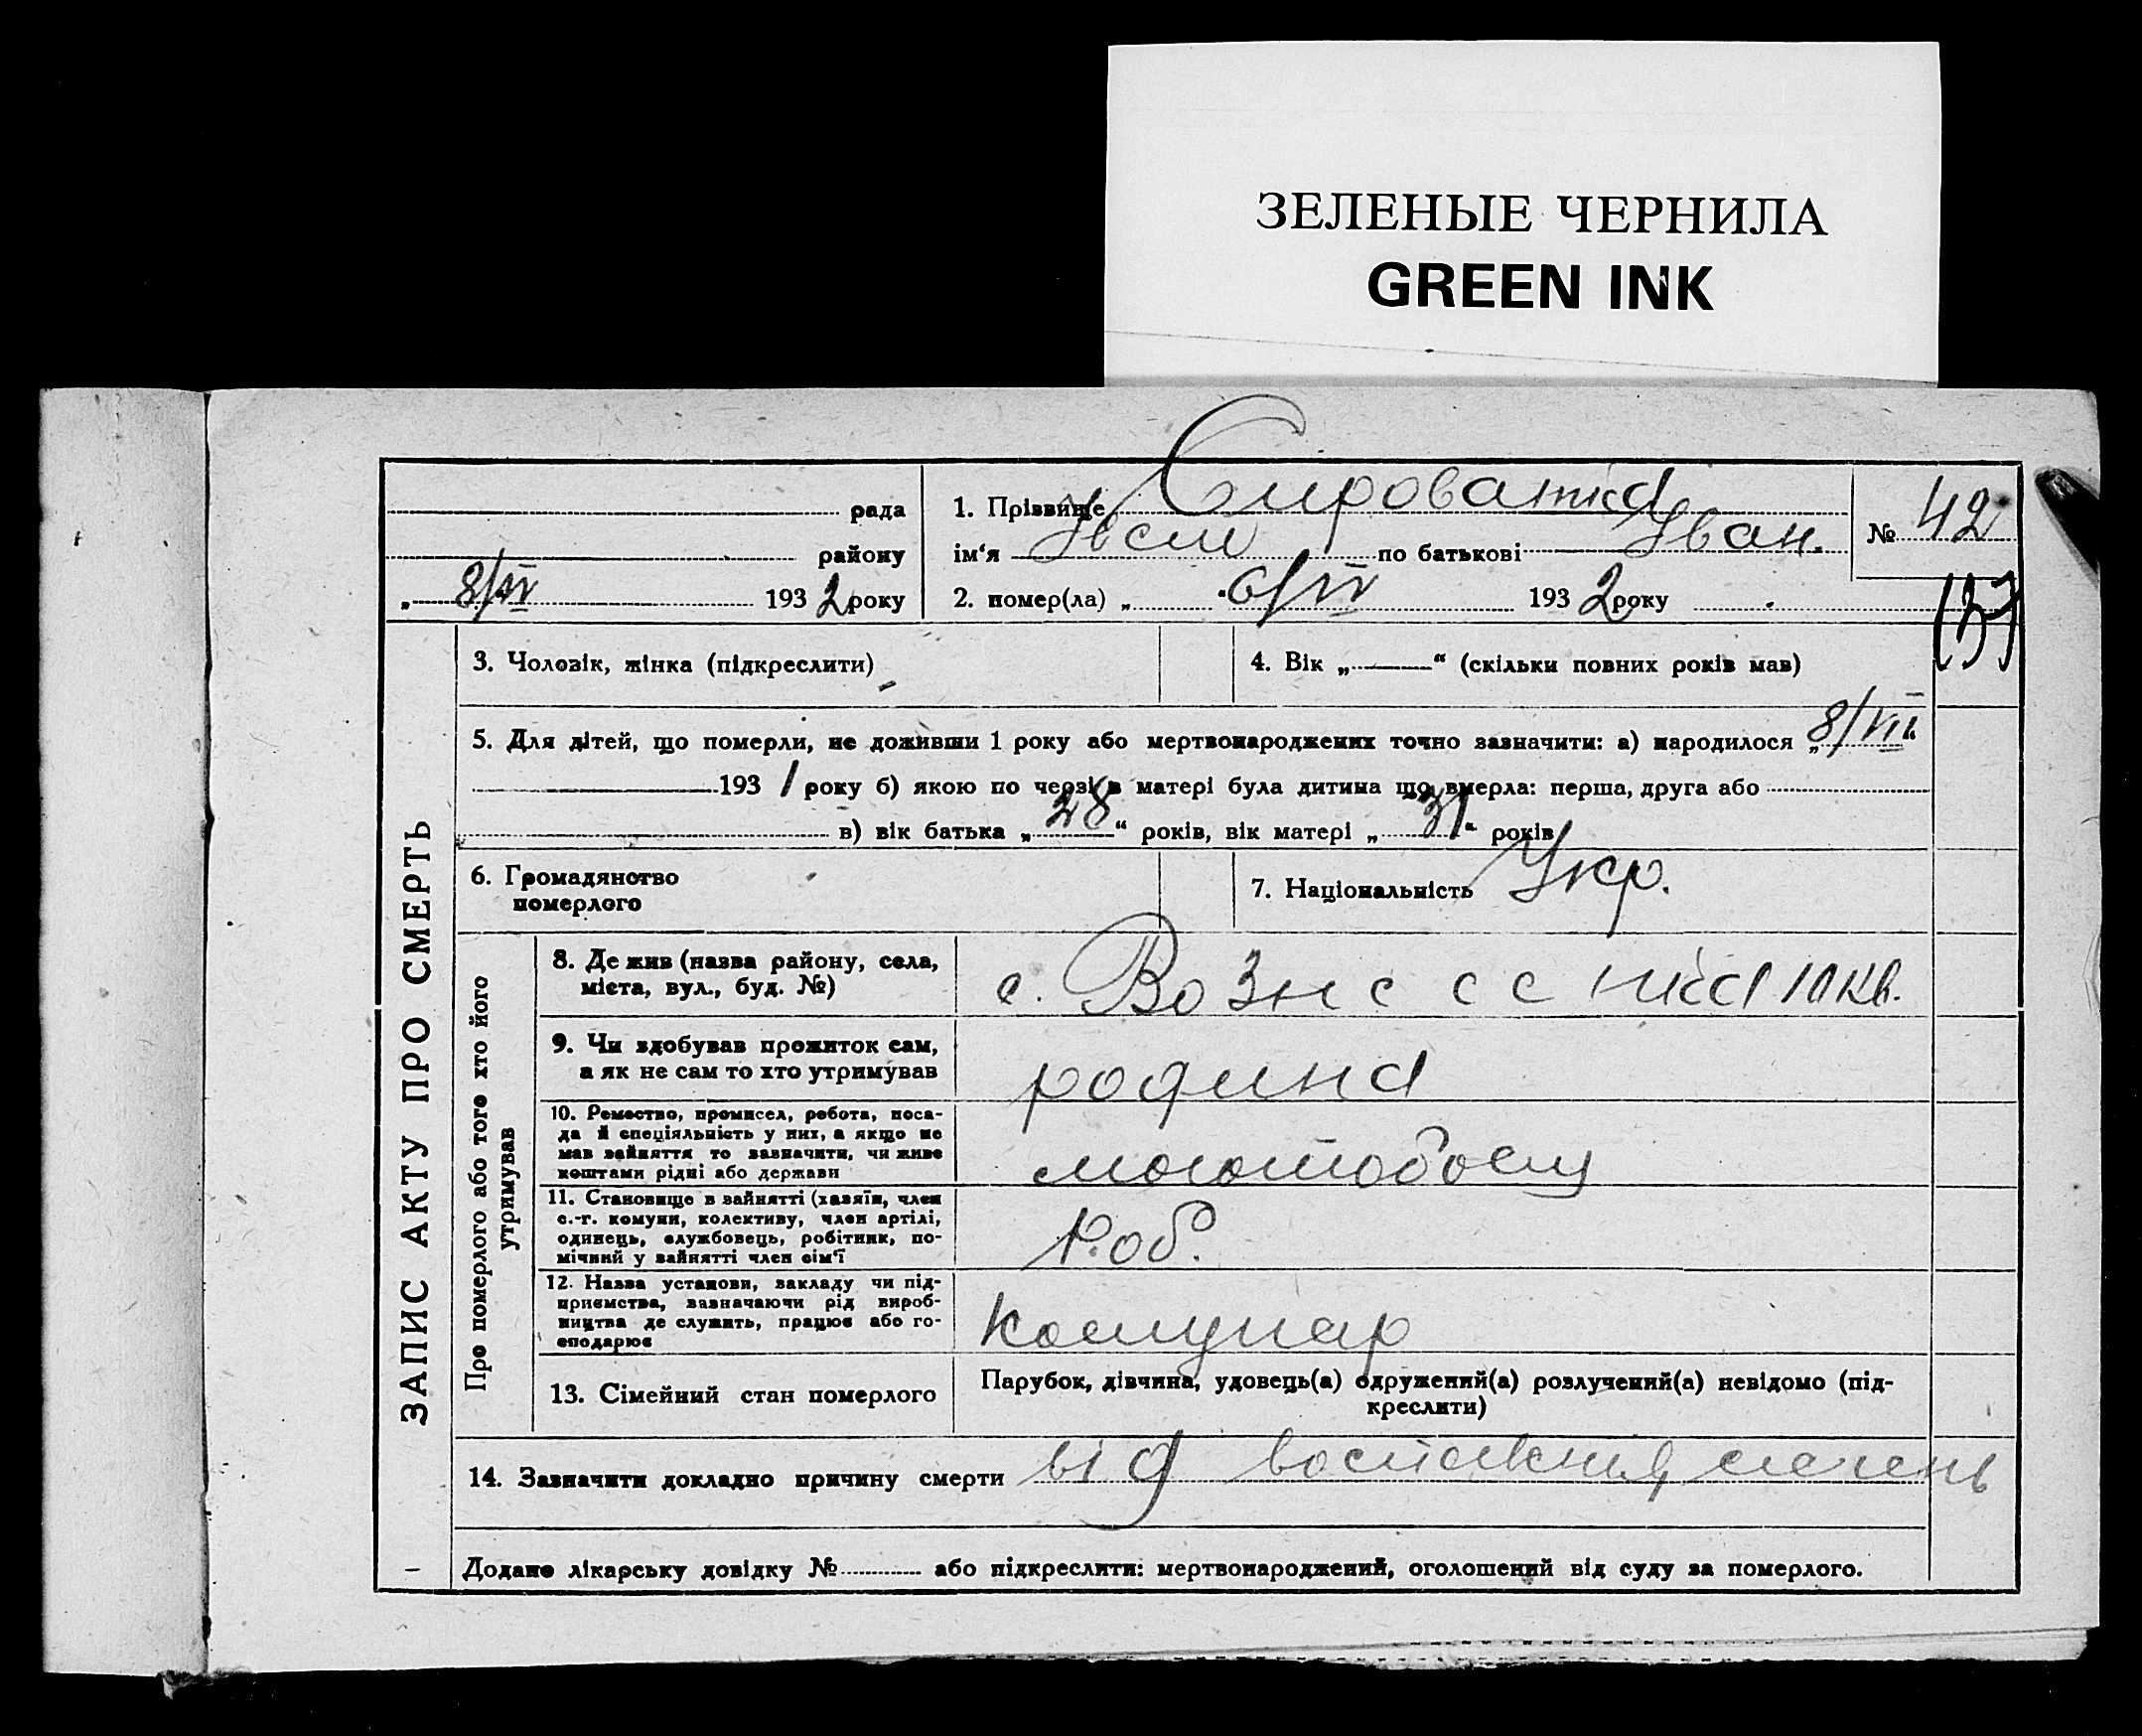 ЗЕЛЕНЫЕ ЧЕРНИЛА
GREEN INK
рада
району
„ 8/IV 1932 року
1. Прізвище Сироватка
ім‘я по батькові Іван.
2. помер(ла) „ 6/IV 1932 року
№ 42
ЗАПИС АКТУ ПРО СМЕРТЬ
3. Чоловік, жінка (підкреслити)
4. Вік „ “ (скільки повних років мав)
5. Для дітей, що померли, не доживши 1 року або мертвонароджених точно зазначити: а) народилося „ 8/VII “
1931 року б) якою по черзі в матері була дитина що вмерла: перша, друга або
в) вік батька „ 28 “ років, вік матері „ 31 “ років
6. Громадянство
померлого
7. Національність Укр.
Про померлого або того хто його
утримував
8. Де жив (назва району, села,
міста, вул., буд. №)
с. Вознесенка 10 кв.
9. Чи здобував прожиток сам,
а як не сам то хто утримував
родина
10. Ремество, промисел, робота, поса-
да й спеціяльність у них, а якщо не
мав зайняття то зазначити, чи живе
коштами рідні або держави
11. Становище в зайнятті (хазяїн, член
с.-г. комуни, колективу, член артілі,
одинець, службовець, робітник, по-
мічний у зайнятті член сім‘ї
Роб.
12. Назва установи, закладу чи під-
приємства, зазначаючи рід вироб-
ництва де служить, працює або го-
сподарює
Комунар
13. Сімейний стан померлого
Парубок, дівчина, удовець(а) одружений(а) розлучений(а) невідомо (під-
креслити)
14. Зазначити докладно причину смерти від
Додано лікарську довідку № або підкреслити: мертвонароджений, оголошений від суду за померлого.